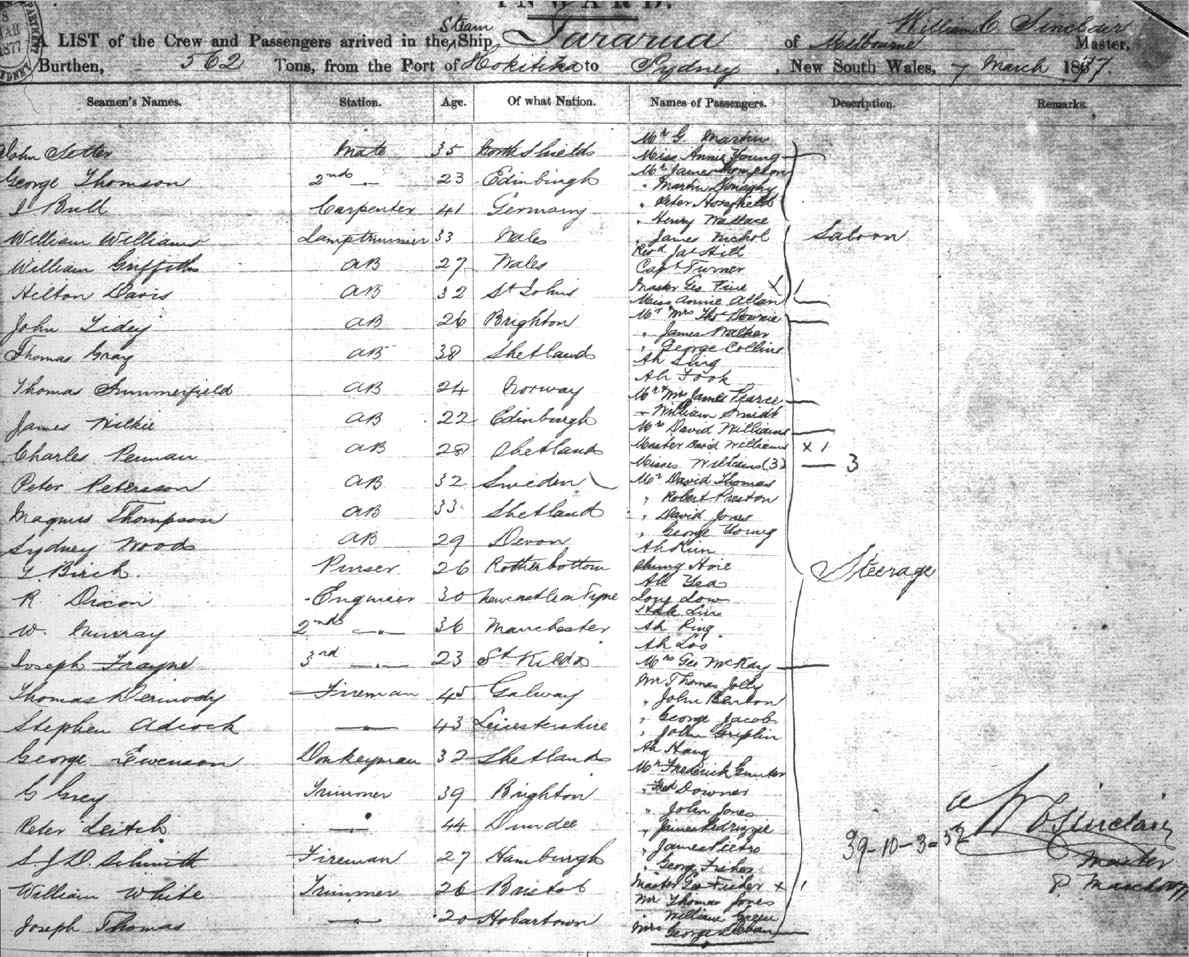 INWARD.
A LIST of the Crew and Passengers arrived in the Steam Ship Tararua of Melbourne William C. Sinclair Master,
Burthen, 562 Tons, from the Port of Hokitika to Sydney, New South Wales, 7 March 1877.
Seamen's Names. Station. Age. Of what Nation. Names of Passengers. Description. Remarks.
Mr G. Martin
John Setter Mate 35 North Shields Miss Annie Young
George Thomson 2nd 23 Edinburgh Mr James Thompson
" Martin Donaghy
Bull Carpenter 41 Germany " Peter
" Henry Wallace
William Williams Lamptrimmer 33 Wales " James Nichol Saloon
Revd Jas Hill
William Griffiths AB 27 Wales Capt Turner
Hilton Davis AB 32 St Johns Master Geo. X 1
Miss Annie Allan
John Tidey AB 26 Brighton Mr Mrs Thos Downie
" James Walker
Thomas Gray AB 38 Shetland " George Collins
Ah Sing
Ah Fook
Thomas Summerfield AB 24 Norway Mr & Mrs James Pearce
William Smidt
James Wilkie AB 22 Edinburgh Mrs David Williams
Charles Penman AB 28 Shetland Master David Williams x 1
Misses Williams (3) 3
Peter Peterson AB 32 Sweden Mr David Thomas
" Robert Preston
Magnus Thompson AB 33 Shetland " David Jones
" George Young
Sydney Woods AB 29 Devon Ah
Birch Purser 26
Steerage
Ah Yea
R Dixon Engineer 30 Newcastle on Tyne Long Low
W. Murray 2nd 36 Manchester Ah
Ah
Joseph Frayne 3rd 23 St Kilda Mrs Geo McKay
Thomas Dermody Fireman 45 Galway Mr Thomas Jolly
" John Benton
Stephen Adcock 43 Leicestershire " George Jacob
" John Griplin
George Ewenson Donkeyman 32 Shetlands Ah Hang
Mr Frederick
G Grey Trimmer 39 Brighton Fred Downer
" John Jones
Peter Leitch 44 Dundee " James
" James Pietro
S. J. D. Schmidt Fireman 27 Hamburgh " George Fisher 39-10-3-52 W C Sinclair
Master
William White Trimmer 26 Bristol Master Geo Fisher x 1
Mr Thomas Jones
Joseph Thomas 20 Hobartown " William Green
Mrs George